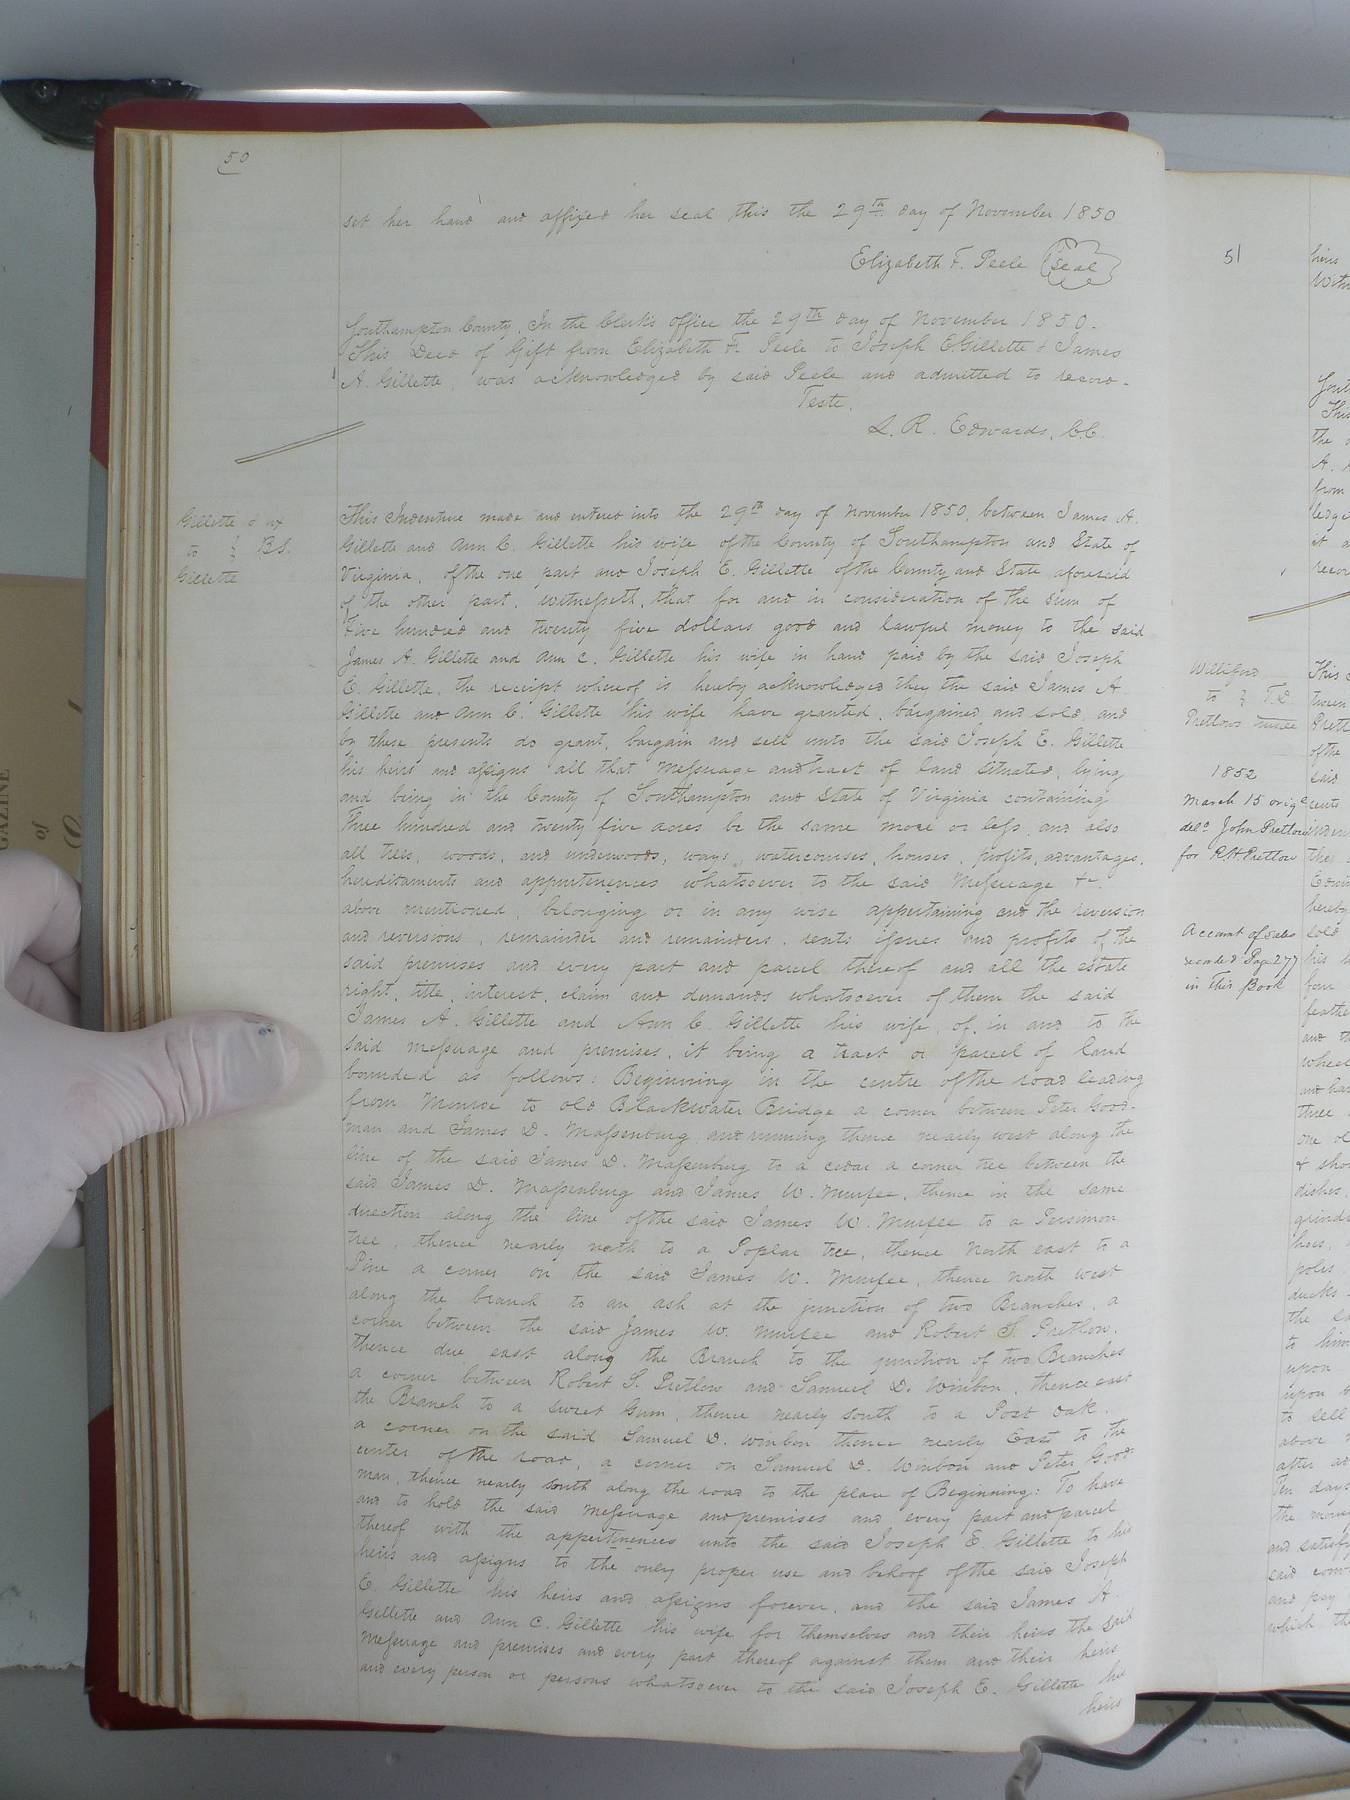 50
set her hand and affixed her seal this the 29th day of November 1850
Elizabeth F. Peele (Seal)
Southampton County, In the Clerk's office the 29th day of November 1850.
This Deed of Gift from Elizabeth F. Peele to Joseph E. Gillette & James
A. Gillette, was acknowledged by said Peele and admitted to record.
Teste,
L. R. Edwards, C.C.
Gillette & ux
to } B.S.
Gillette
This Indenture made and entered into the 29th day of November 1850, between James A.
Gillette and Ann C. Gillette his wife of the County of Southampton and State of
Virginia, of the one part and Joseph E. Gillette of the County and State aforesaid
of the other part, witnesseth, that for and in consideration of the sum of
Five hundred and twenty five dollars good and lawful money to the said
James A. Gillette and Ann C. Gillette his wife in hand paid by the said Joseph
E. Gillette, the receipt whereof is hereby acknowledged they the said James A.
Gillette and Ann C. Gillette his wife have granted, bargained and sold, and
by these presents do grant, bargain and sell unto the said Joseph E. Gillette
his heirs and assigns all that Messuage and tract of land situated, lying
and being in the County of Southampton and State of Virginia containing
Three hundred and twenty five acres be the same more or less, and also
all trees, woods, and underwoods, ways, watercourses, houses, profits, advantages,
hereditaments and appurtenences whatsoever to the said Messuage &c.
above mentioned, belonging or in any wise appertaining and the reversion
and reversions, remainder and remainders, rents issues and profits of the
said premises and every part and parcel thereof and all the estate
right, title, interest, claim and demands whatsoever of them the said
James A. Gillette and Ann C. Gillette his wife, of, in and to the
said messuage and premises, it being a tract or parcel of land
bounded as follows: Beginning in the centre of the road leading
from Monroe to old Blackwater Bridge a corner between Peter Good-
man and James D. Massenburg and running thence nearly west along the
line of the said James D. Massenburg to a cedar a corner tree between the
said James D. Massenburg and James W. Murfee, thence in the same
direction along the line of the said James W. Murfee to a Persimon
tree, thence nearly north to a Poplar tree, thence North east to a
Pine a corner on the said James W. Murfee, thence North west
along the branch to an ash at the junction of two Branches, a
corner between the said James W. Murfee and Robert S. Pretlow.
thence due east along the Branch to the junction of two Branches
a corner between Robert S. Pretlow and Samuel D. Winbon, thence east
the Branch to a sweet Gum, thence nearly South to a Post oak.
a corner on the said Samuel D. Winbon thence nearly East to the
center of the road, a corner on Samuel D. Winbon and Peter Good
man, thence nearly south along the road to the place of Beginning: To have
and to hold the said Messuage and premises and every part and parcel
thereof with the appertinences unto the said Joseph E. Gillette to his
heirs and assigns to the only proper use and behoof of the said Joseph
E. Gillette his heirs and assigns forever, and the said James A.
Gillette and Ann C. Gillette his wife for themselves and their heirs the said
Messuage and premises and every part thereof against them and their heirs
and every person or persons whatsoever to the said Joseph E. Gillette his
heirs
51
Williford
to } T.D.
Pretlows
1852
March 15 orig
deld John Pretlow
for R H Pretlow
Account of sales
recorded Page 277
in this Book